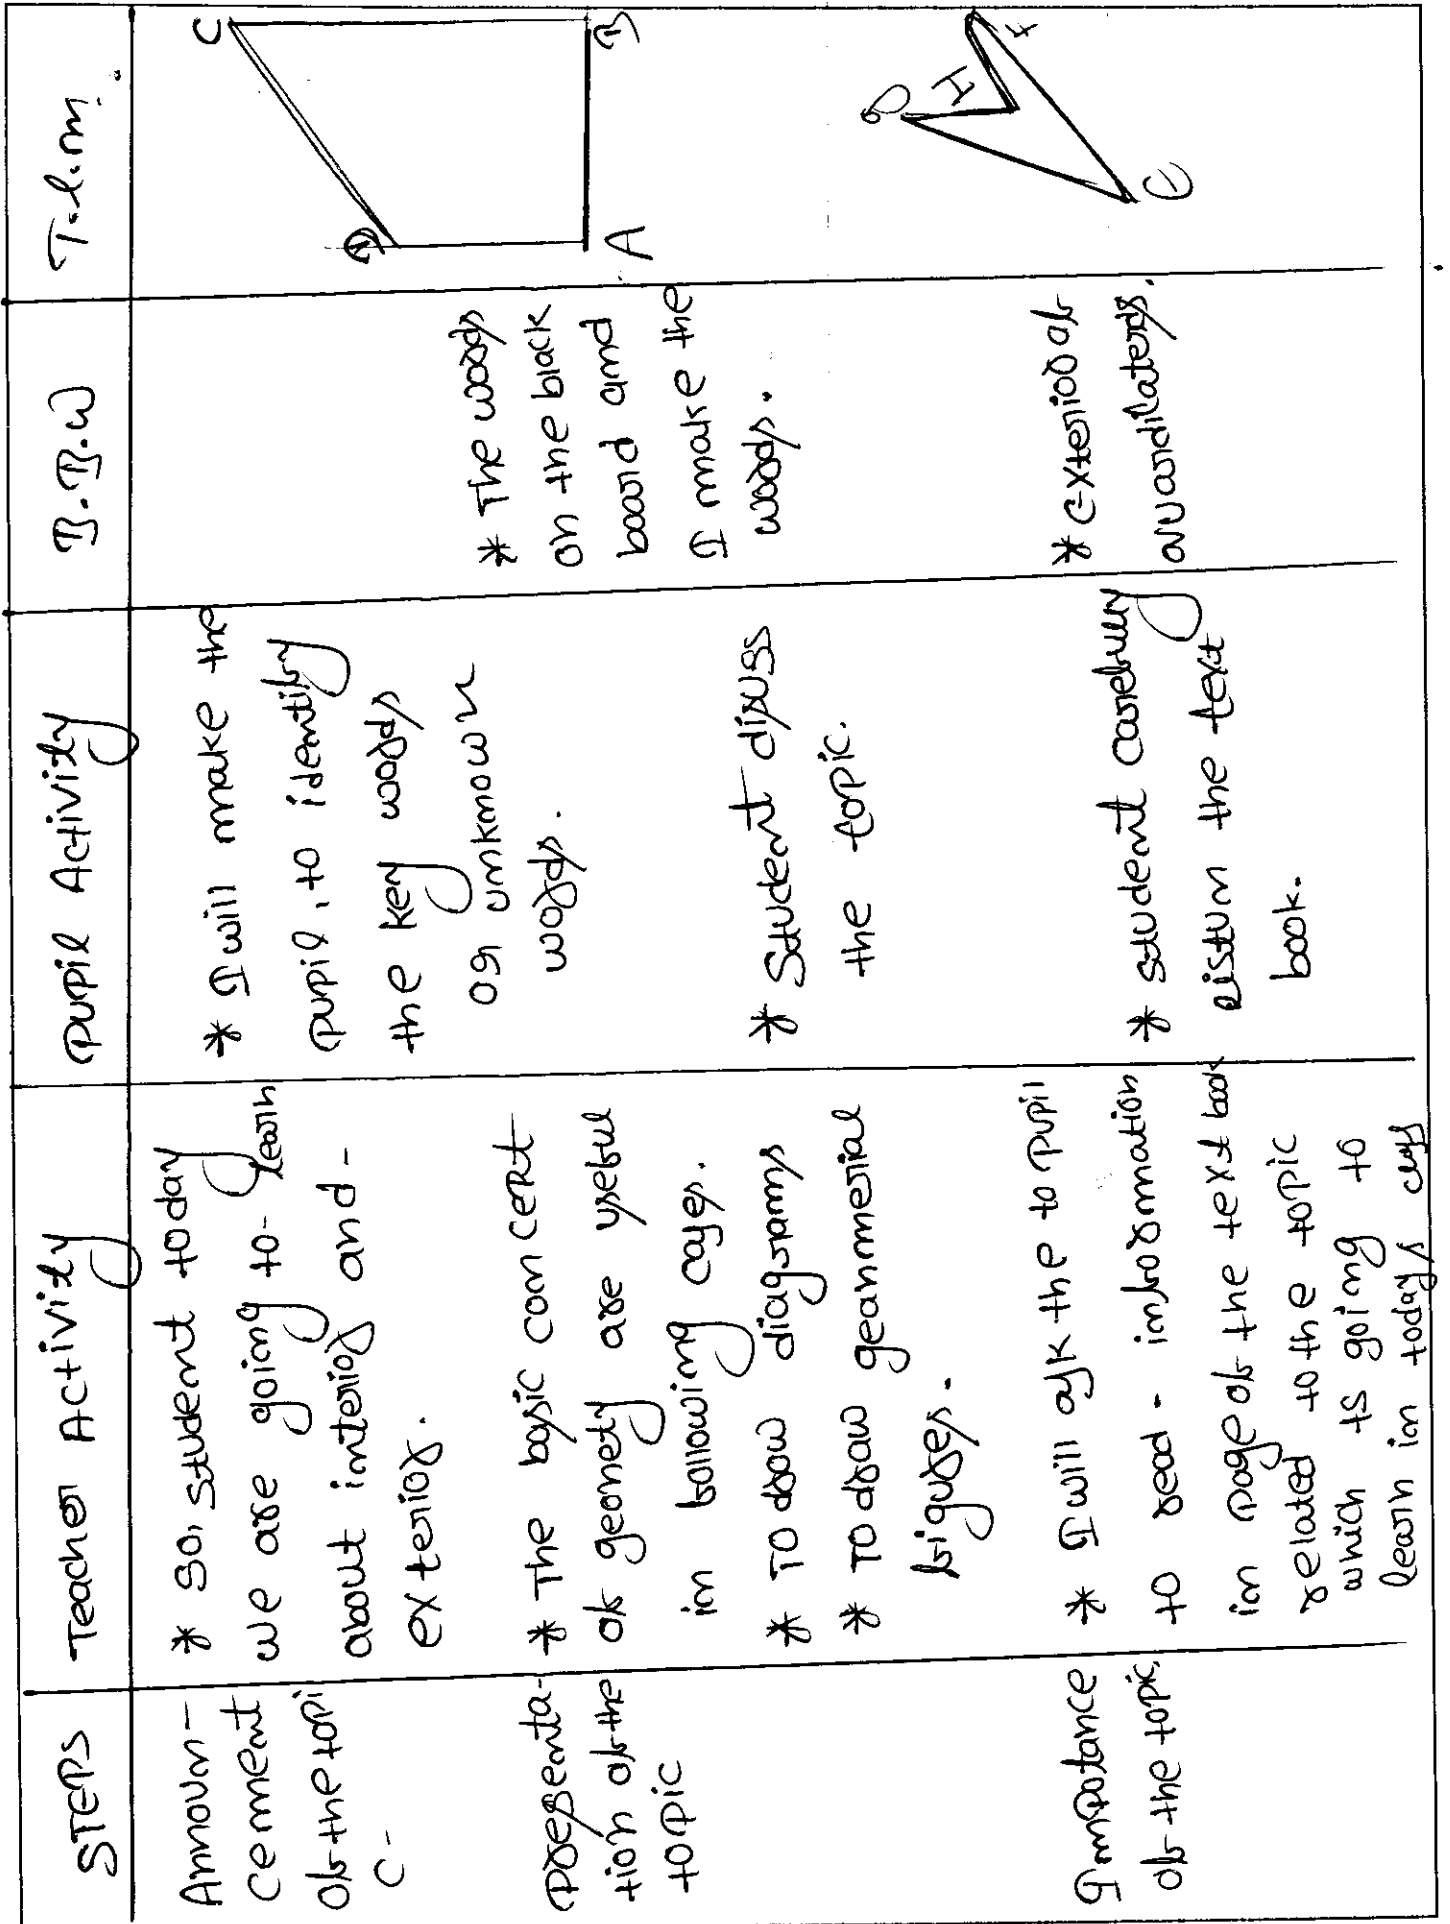 STEPS
Teacher Activity
Pupil Activity
B.B.W
T.l.m.
Announ-
cement
Of the topi
c-
* So, student today
we are going to- learn
about interior and -
exterior.
* I will make the
pupil, to identify
the key words
or unknown
words.
Presenta-
tion of the
topic
* The basic concert
of geomety are useful
in following cases.
* To draw diagrams
* To draw geanmerial
figures.
* Student disuss
the topic.
* The words
on the black
board and
I make the
words.
C
D
B
A
Impotance
of the topic.
* I will ask the to pupil
to read - information
in page of the text book
related to the topic
which is going to
learn in todays
* Student carefully
listun the text
book.
* Exterior of
H